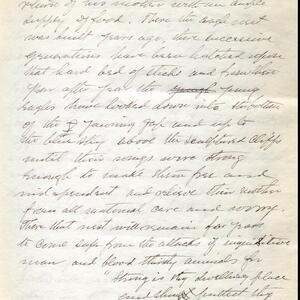 return of his mother with an ample
supply of food. There the eagle nest
was built years ago, there successive
generations have been hatched upon
that hard bed of sticks and from there
year after year the young
eagles have looked down into the
of the yawning gap and up to
the blue sky above the sculptured cliffs
until their wings were strong
enough to make them free and
independent and relieve their mother
from all maternal care and worry.
There that nest will remain for years
to come safe from the attacks of inquisitive
man and blood thirsty animals for
"Strong is thy dwelling place
and thou puttest thy